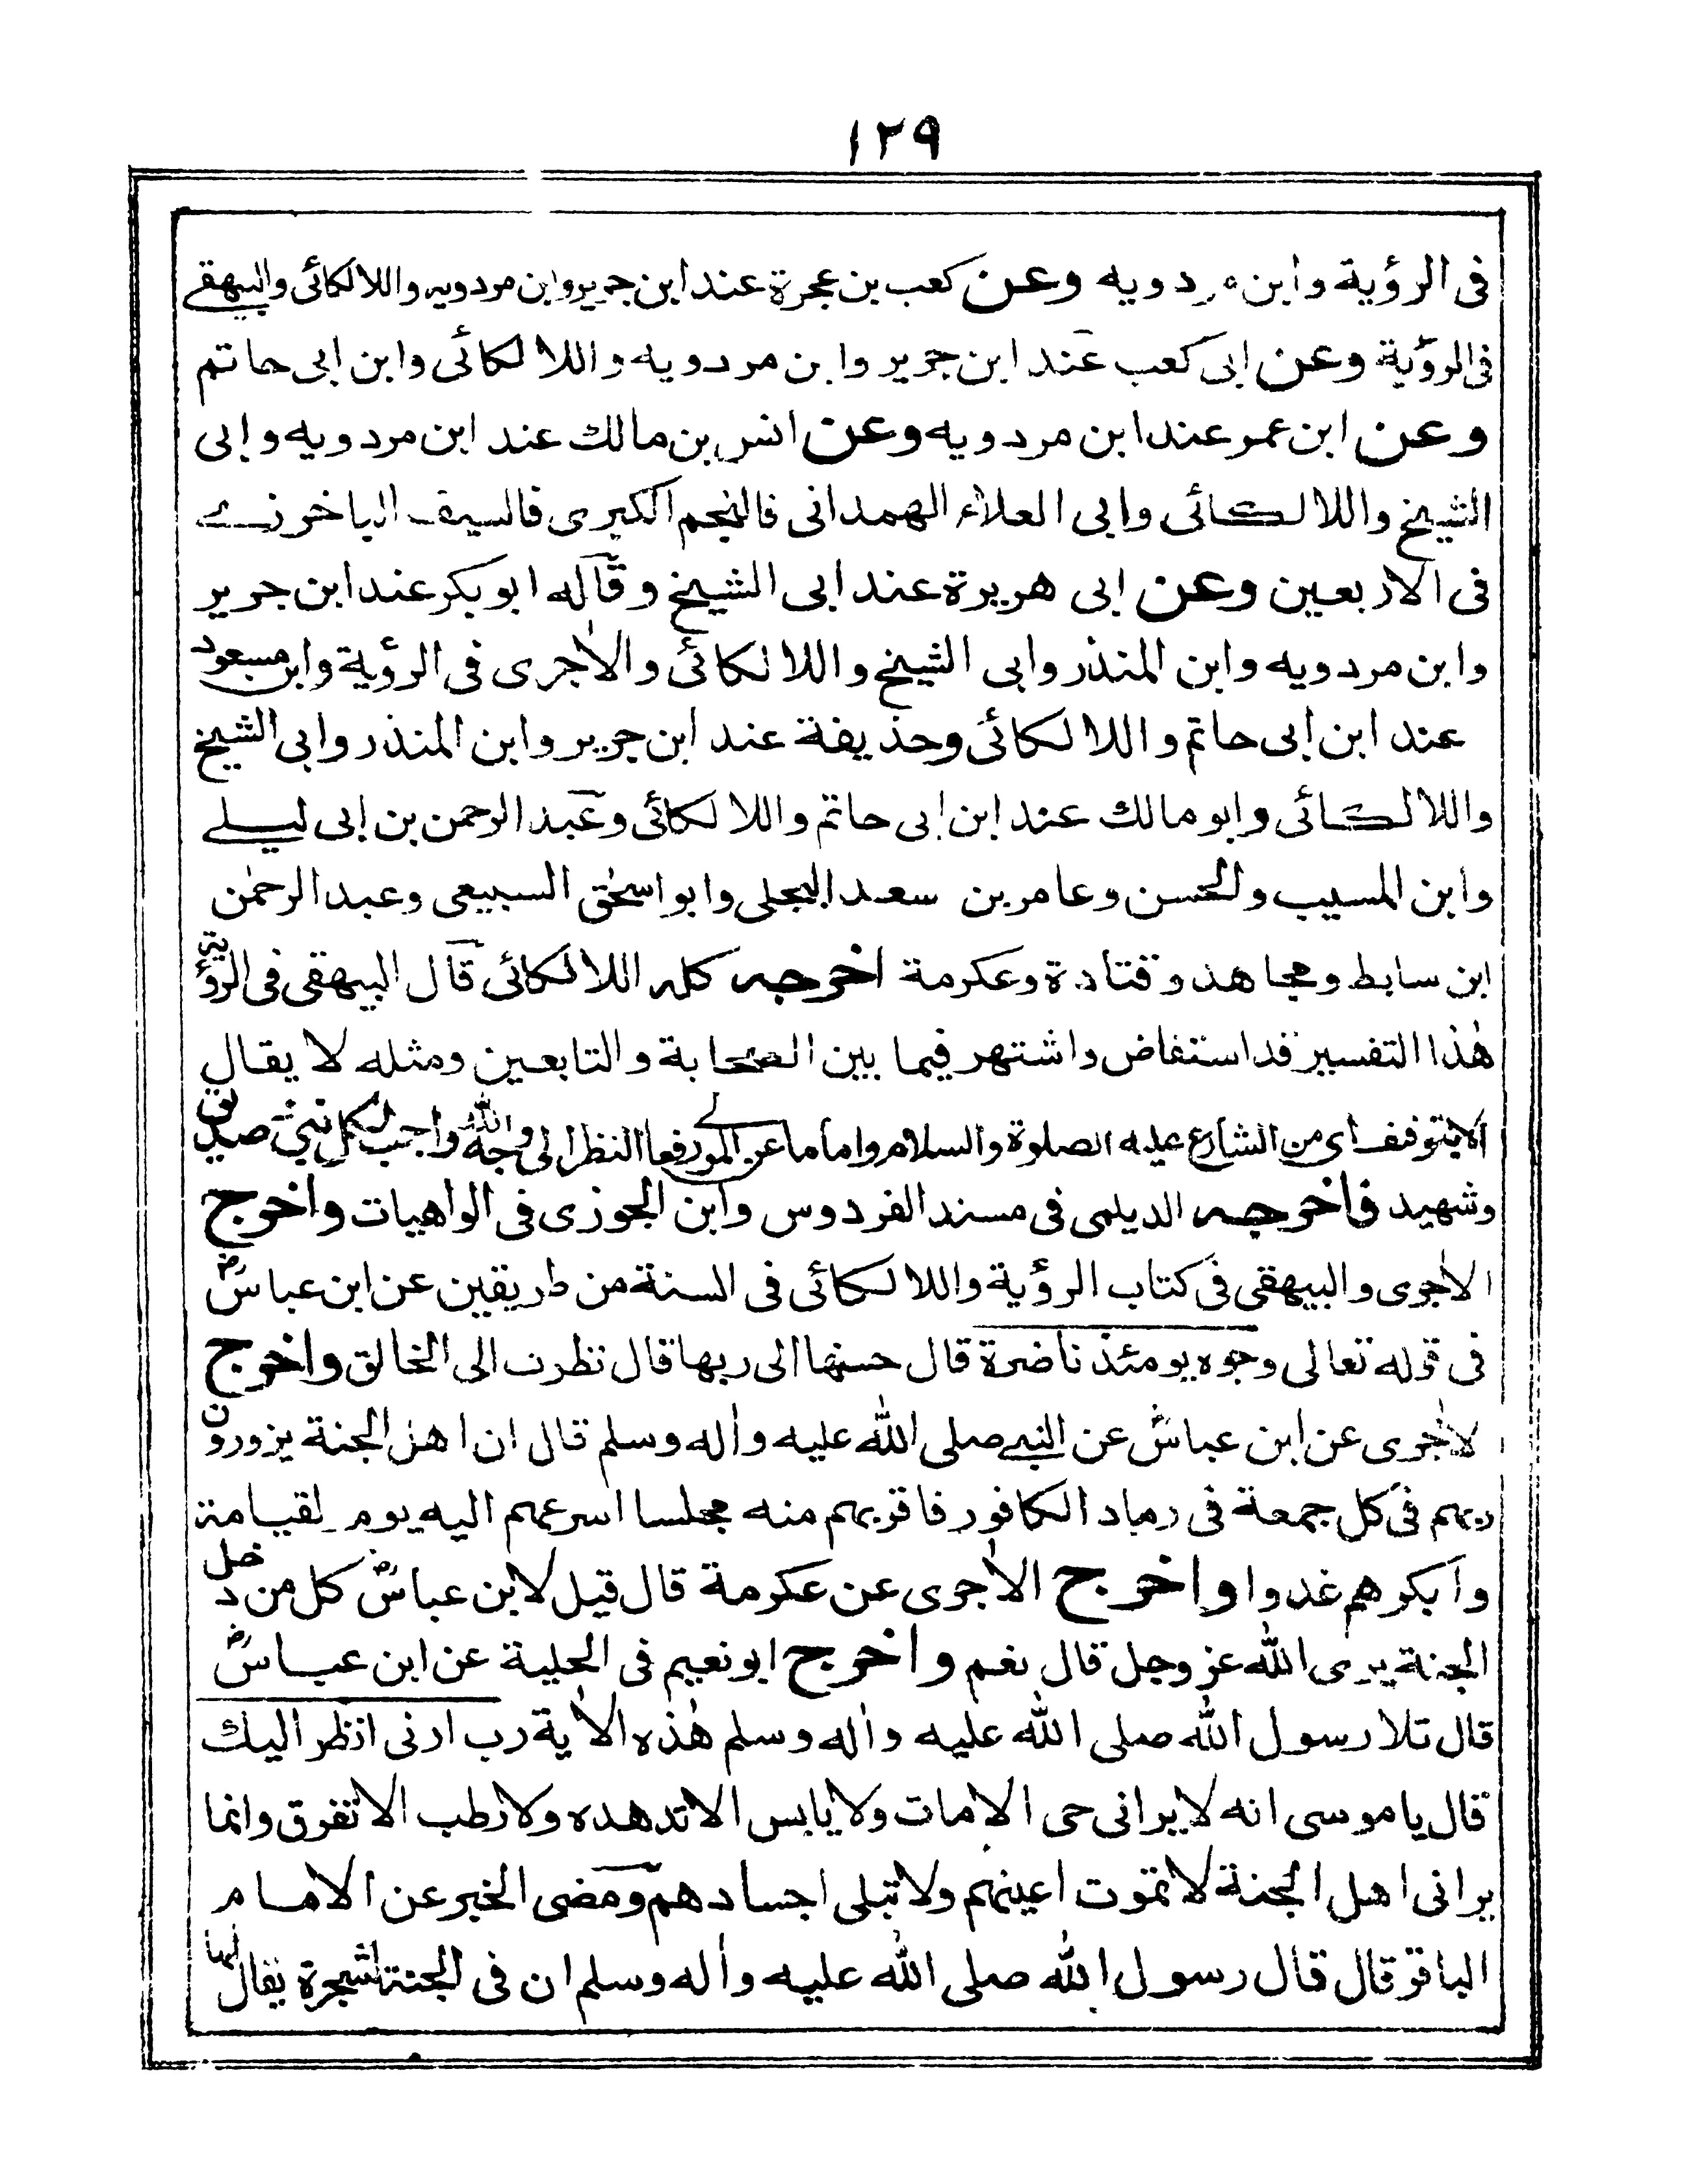 ١٢٩
فى الرؤية وابن مردويه وعن كعب بن عجرة عند ابن جرير وابن مردويه واللالكائى والبيهقے
فى الرؤية وعن ابى كعب عند ابن جرير وابن مردويه واللالكائى وابن ابى حاتم
وعن ابن عمر عند ابن مردويه وعن انس بن مالك عند ابن مردويه وابى
الشيخ واللالكائى وابى العلاء الهمدانى فالنجم الكبرى فالسيف الباخرزے
فى الاربعين وعن ابى هريرة عند ابى الشيخ وقاله ابو بكر عند ابن جرير
وابن مردويه وابن المنذر وابى الشيخ واللالكائى والاٰجرى فى الرؤية وابن مسعود
عند ابن ابى حاتم واللالكائى وحذيفة عند ابن جرير وابن المنذر وابى الشيخ
واللالكائى وابو مالك عند ابن ابى حاتم واللالكائى وعبد الرحمن بن ابى ليلے
وابن المسيب والحسن وعامر بن سعد البجلى وابو اسحٰق السبيعى وعبد الرحمٰن
ابن سابط ومجاهد وقتادة وعكرمة اخرجه كله اللالكائى قال البيهقى فى الرؤية
هٰذا التفسير قد استفاض واشتهر فيما بين الصحابة والتابعين ومثله لا يقال
الا بتوقف اى من الشارع عليه الصلوة والسلام واما ما عن المورفعا النظر الى وجه الله واجب لكل نبى صديق
وشهيد فاخرجه الديلمى فى مسند الفردوس وابن الجوزى فى الواهيات واخرج
الاٰجرى والبيهقى فى كتاب الرؤية واللالكائى فى السنة من طريقين عن ابن عباسؓ
فى قوله تعالى وجوه يومئذ ناضرة قال حسنها الى ربها قال نظرت الى الخالق واخرج
لاٰجرى عن ابن عباسؓ عن النبے صلى الله عليه واٰله وسلم قال ان اهل الجنة يزورون
ربهم فى كل جمعة فى رماد الكافور فاقربهم منه مجلسا اسرعهم اليه يوم لقيامة
وابكرهم غدوا واخرج الاٰجرى عن عكرمة قال قيل لابن عباسؓ كل من دخل
الجنة يرى الله عز وجل قال نعم واخرج ابو نعيم فى الحلية عن ابن عباسؓ
قال تلا رسول الله صلى الله عليه واٰله وسلم هٰذه الاٰية رب ارنى انظر اليك
قال يا موسى انه لا يرانى حى الا مات ولا يابس الا تدهده ولا رطب الا تفرق وانما
يرانى اهل الجنة لا تموت اعينهم ولا تبلى اجسادهم ومضى الخبر عن الامام
الباقر قال قال رسول الله صلى الله عليه واٰله وسلم ان فى الجنة لشجرة يقال لها